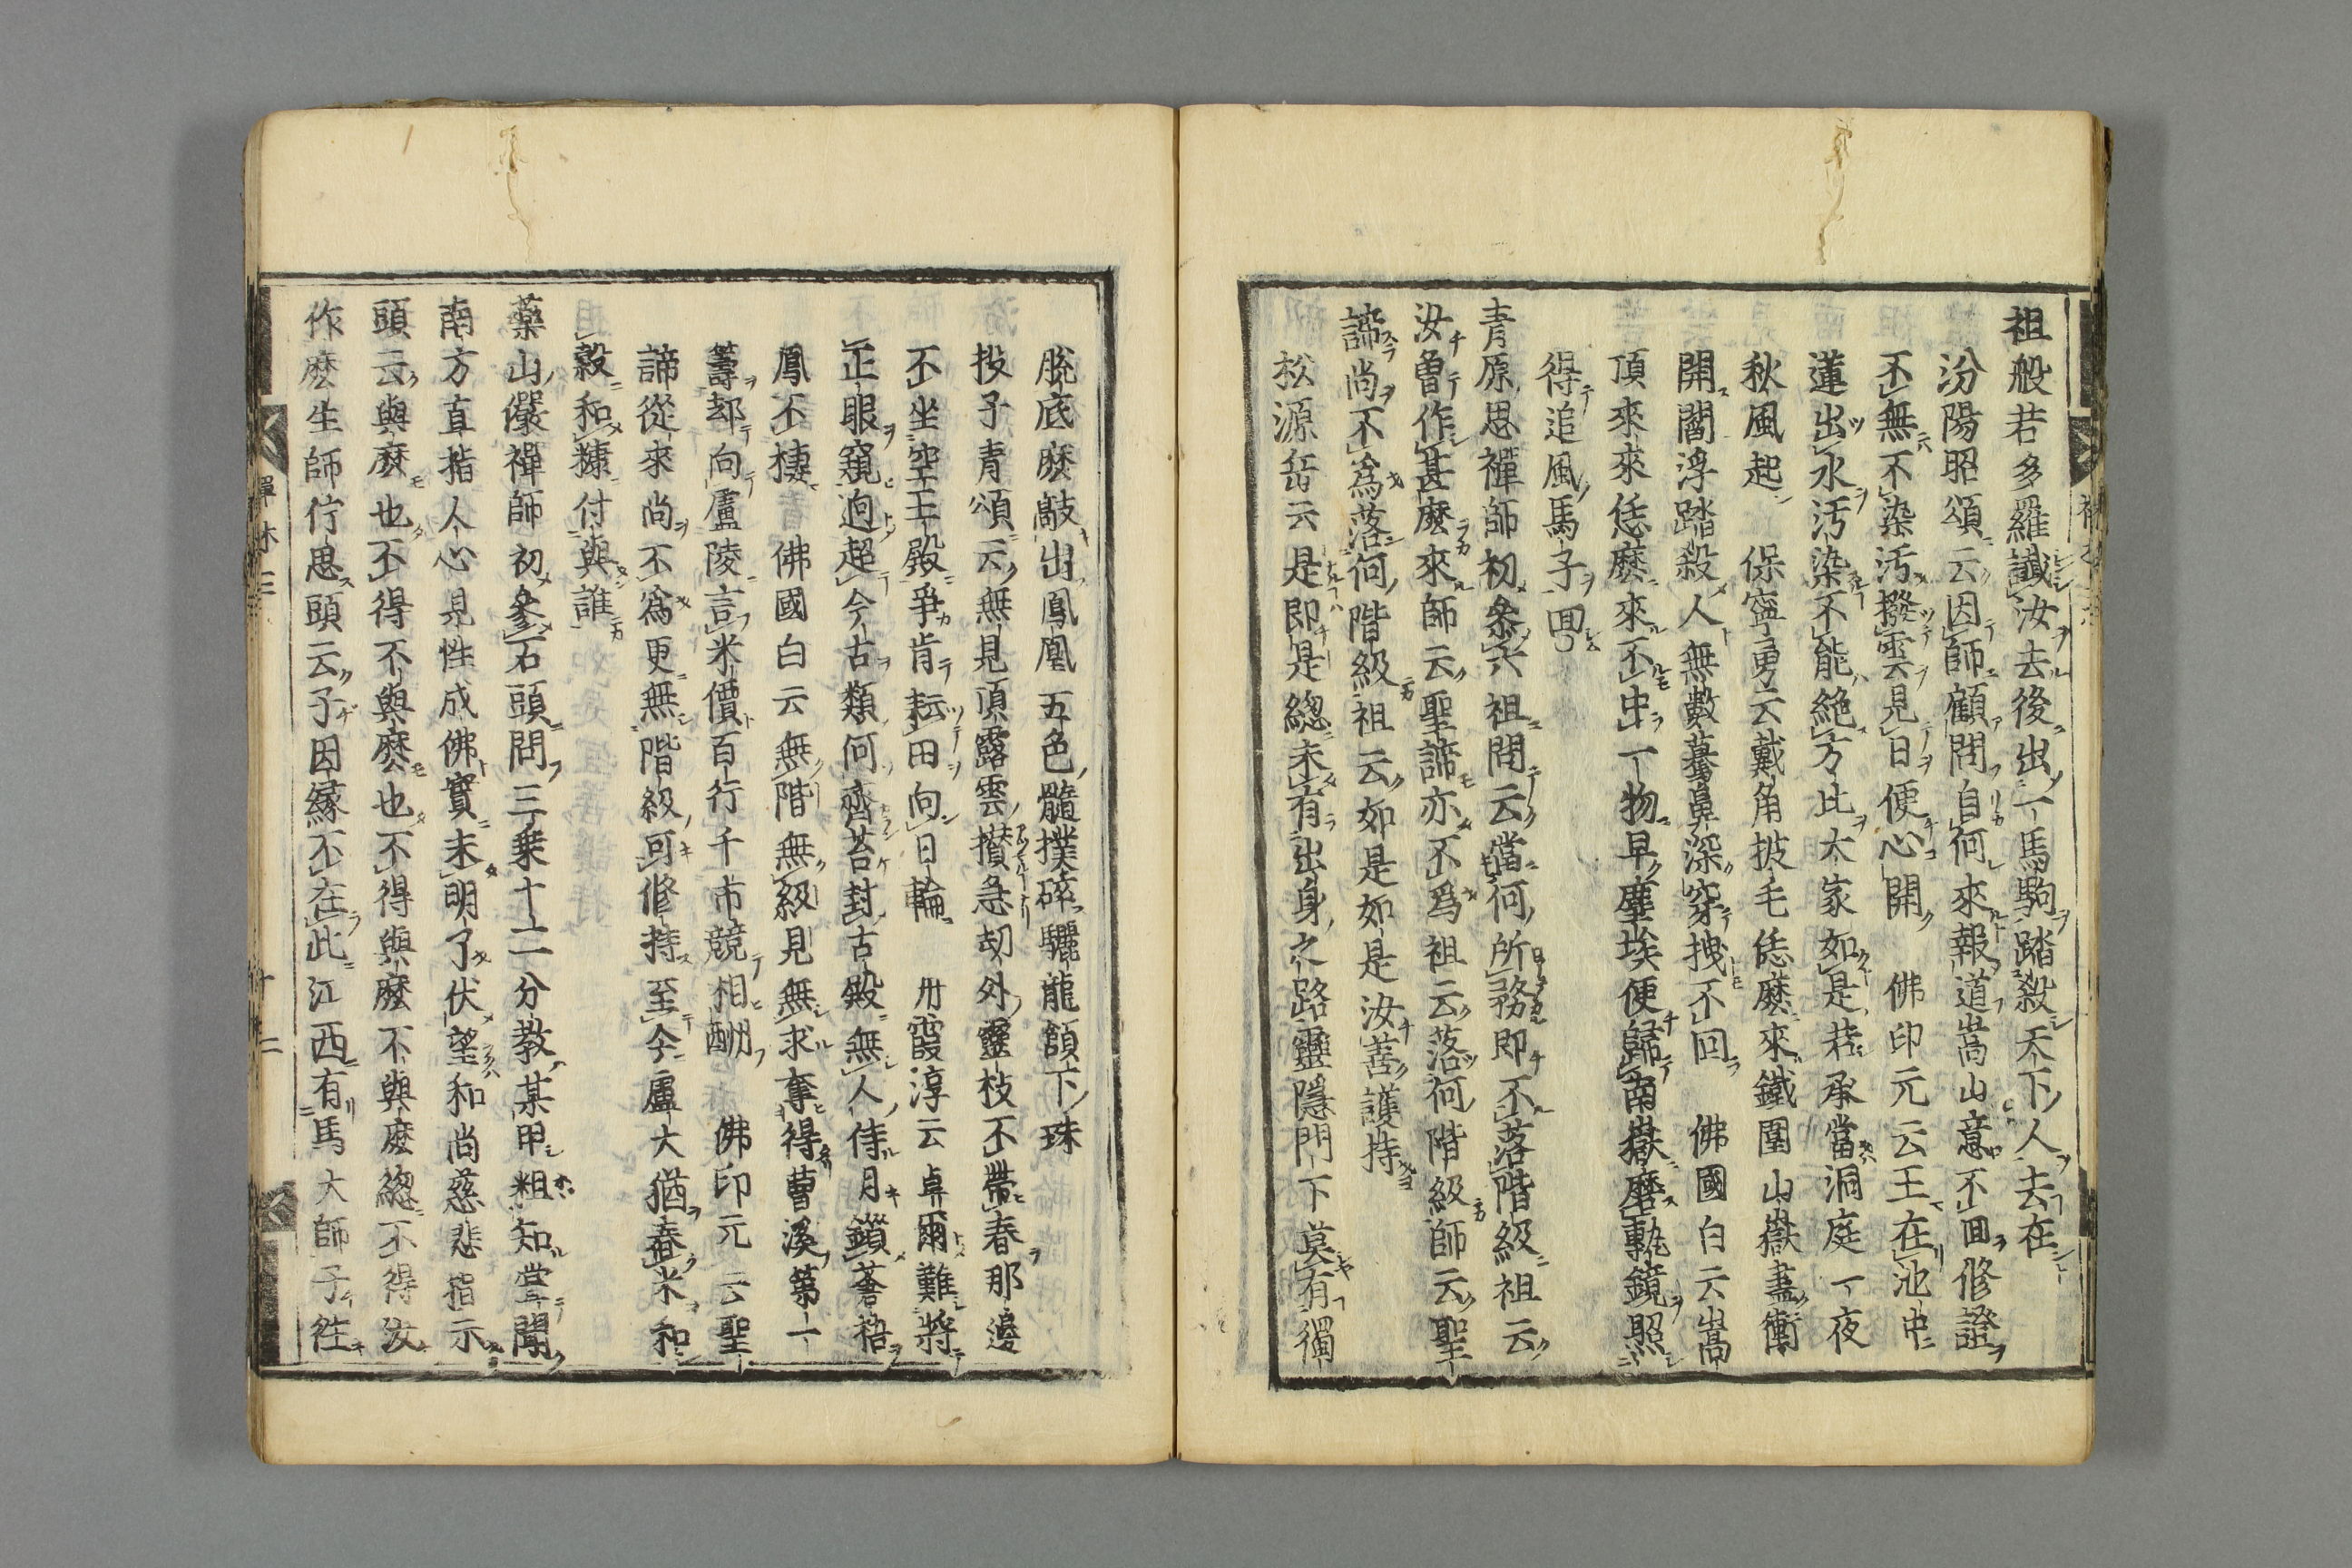 祖般若多羅讖汝去後出一馬駒踏殺天下人去在
汾陽昭頌云因師顧問自何來報道嵩山意不回修證
不無不染汚撥雲見日便心開　佛印元云王在池中
蓮出水汚染不能絶方比大家如是若承當洞庭一夜
秋風起　保寧勇云戴角披毛恁麼來鐵圍山嶽盡衝
開閻浮踏殺人無數驀鼻深穿拽不回　佛國白云嵩
頂來來恁麼來不中一物早塵埃便歸南嶽磨甎鏡照
得追風馬子回
青原思禪師初叅六祖問云當何所務即不落階級祖云
汝曾作甚麼來師云聖諦亦不爲祖云落何階級師云聖
諦尚不爲落何階級祖云如是如是汝善護持
松源岳云是即是總未有出身之路靈隱門下莫有獨
脫底麼敲出鳳凰五色髓撲碎驪龍頷下珠
投子青頌云無見頂露雲攅急刼外靈枝不帶春那邊
不坐空王殿爭肯耘田向日輪　丹霞淳云卓爾難將
正眼窺迥超今古類何齊苔封古殿無人侍月鎖蒼梧
鳳不棲　佛國白云無階無級見無求奪得曹溪第一
籌却向盧陵言米價百行千市競相酬　佛印元云聖
諦從來尚不爲更無階級可修持至今盧大猶舂米和
穀和糠付與誰
藥山儼禪師初參石頭問三乗十二分教某甲粗知甞聞
南方直指人心見性成佛實未明了伏望和尚慈悲指示
頭云與麼也不得不與麼也不得與麼不與麼總不得汝
作麼生師佇思頭云子因緣不在此江西有馬大師子徃
十二